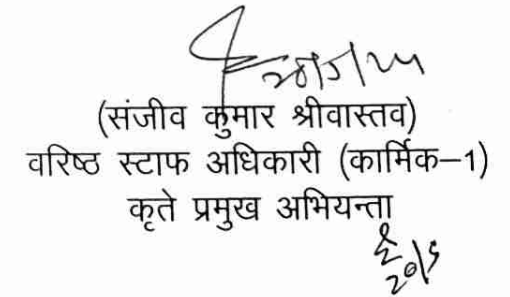 (संजीव कुमार श्रीवास्तव)
वरिष्ठ स्टाफ अधिकारी (कार्मिक–1)
कृते प्रमुख अभियन्ता
20/5